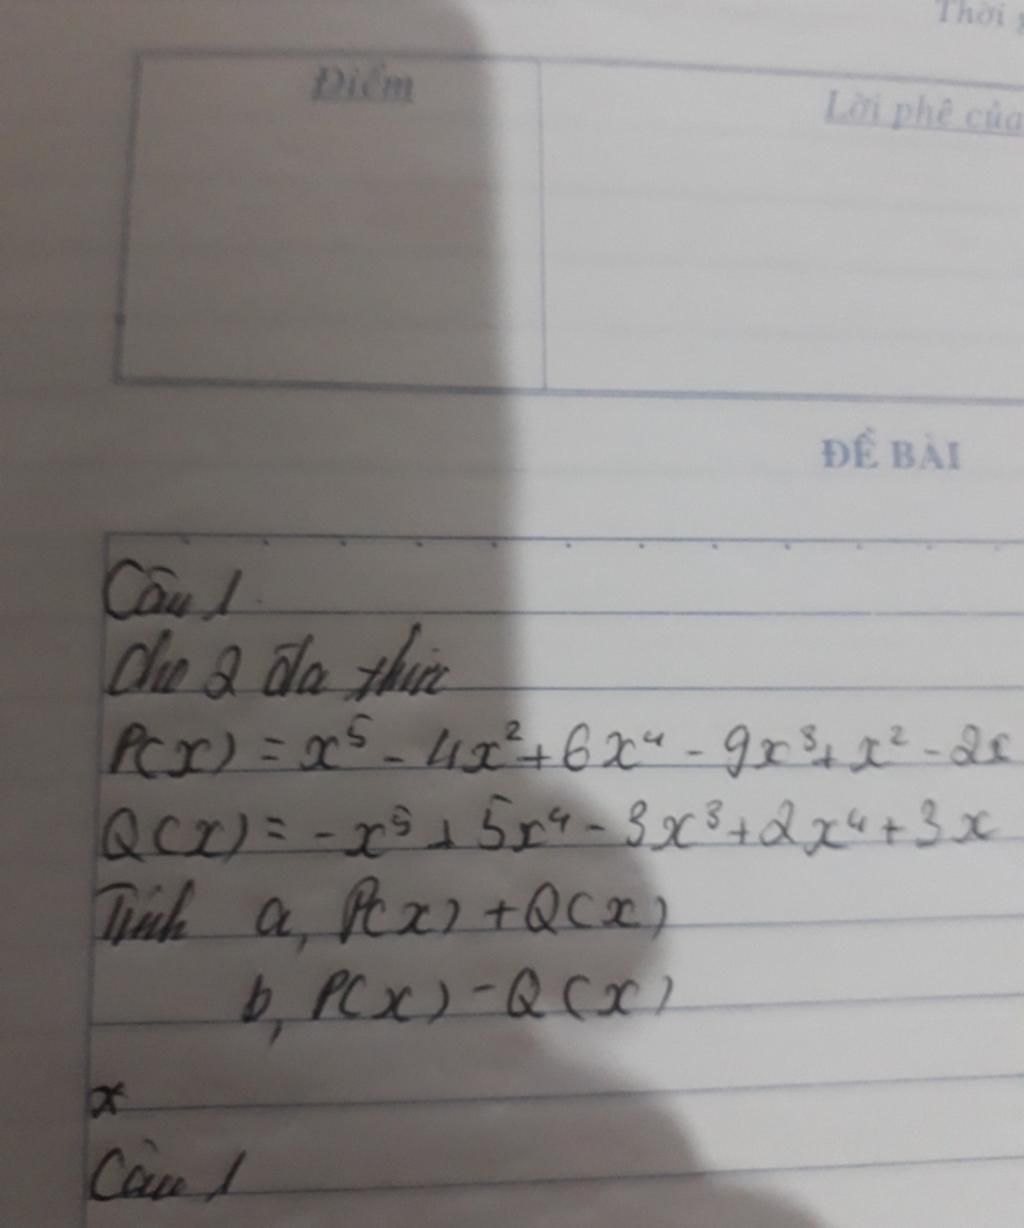 Thời
Điểm
Lời phê của
ĐỀ BÀI
Câu 1
Cho 2 đa thức
P(x) = x⁵ - 4x² + 6x⁴ - 9x³ + x² - 2x
Q(x) = -x⁵ + 5x⁴ - 3x³ + 2x⁴ + 3x
Tính a, P(x) + Q(x)
b, P(x) - Q(x)
x
Câu 1